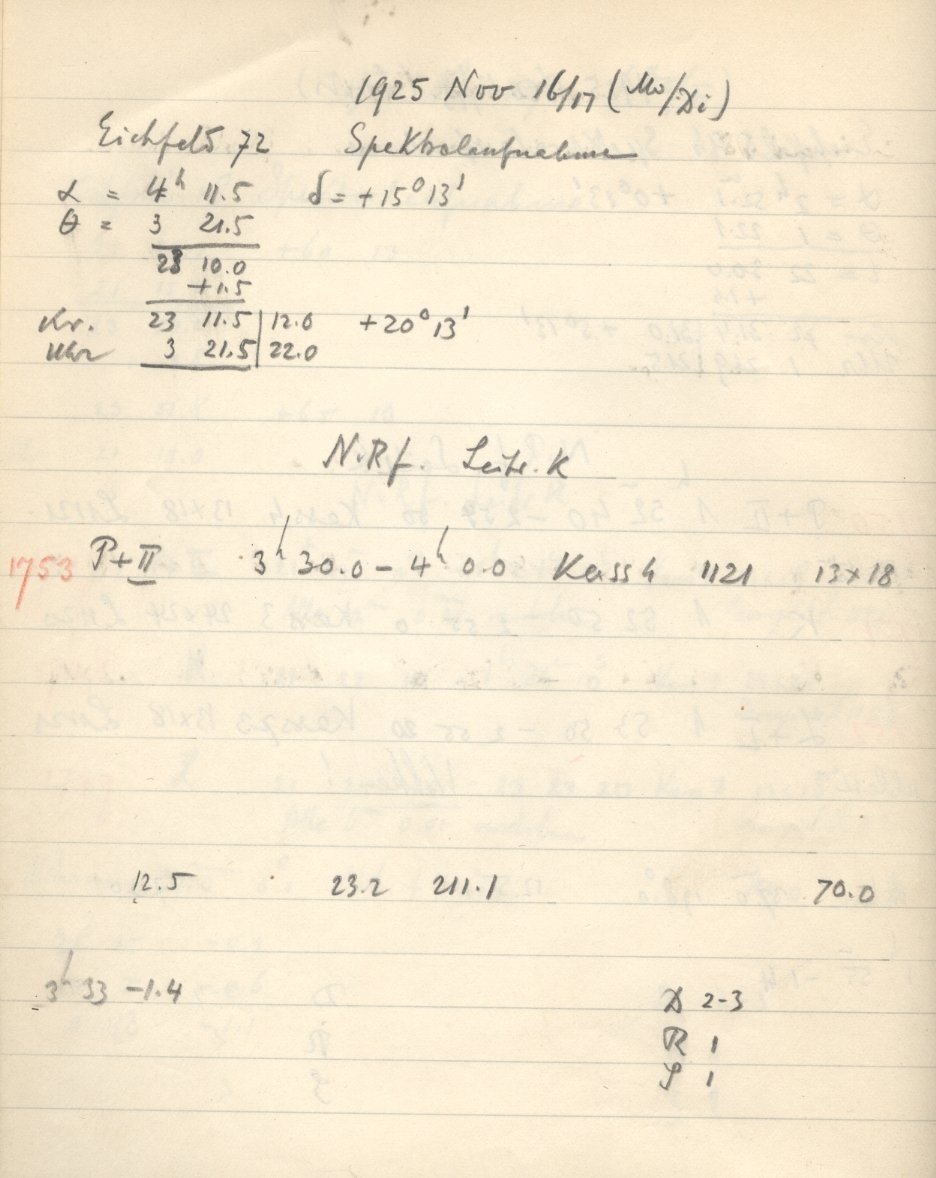 1925 Nov 16/17 (Mo/Di)
Eichfeld 72 Spektralaufnahme
α = 4h 11.5 δ = +15° 13'
θ = 3 21.5
23 10.0
+1.5
Kr. 23 11.5 | 12.0 +20° 13'
Uhr 3 21.5 | 22.0
N.Rf. Leitr. K
1753 P+II 3h 30.0 – 4h 0.0 Kass 4 1121 13×18
12.5 23.2 211.1 70.0
3h 33 –1.4
D 2-3
R 1
S 1